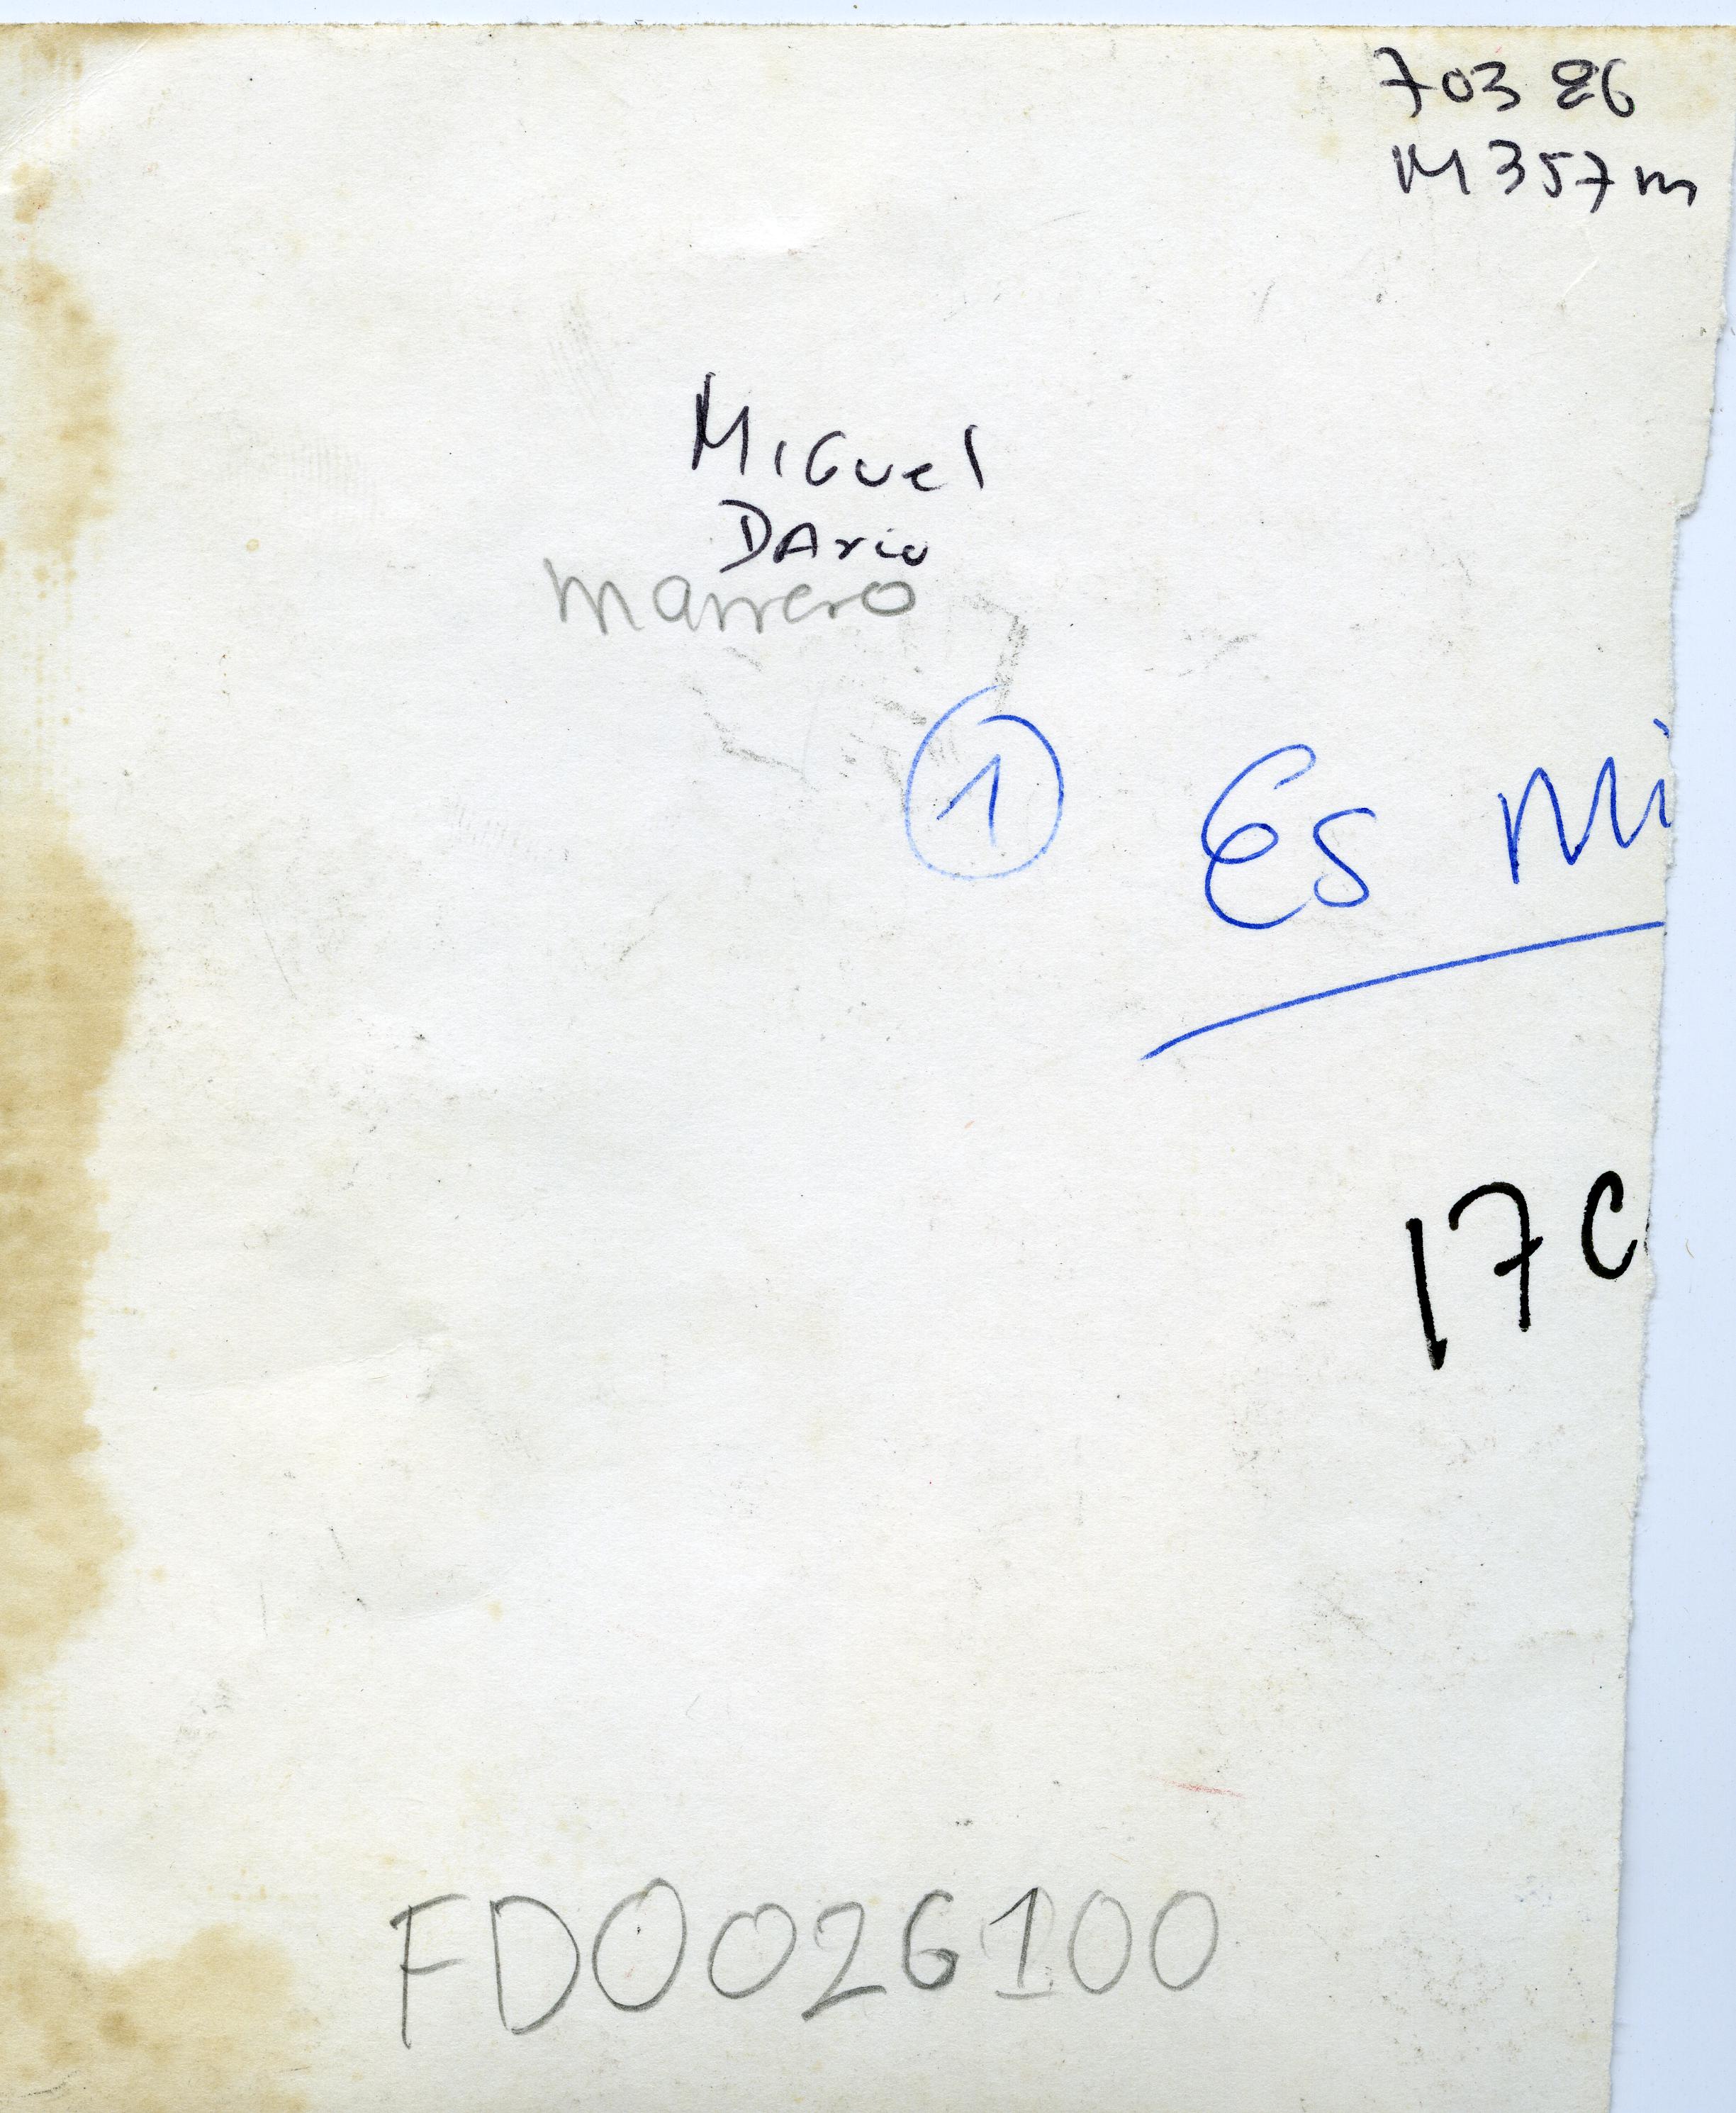 703 86
M357m
Miguel
Dario
marrero
1 Es mi
17c
FD0026100